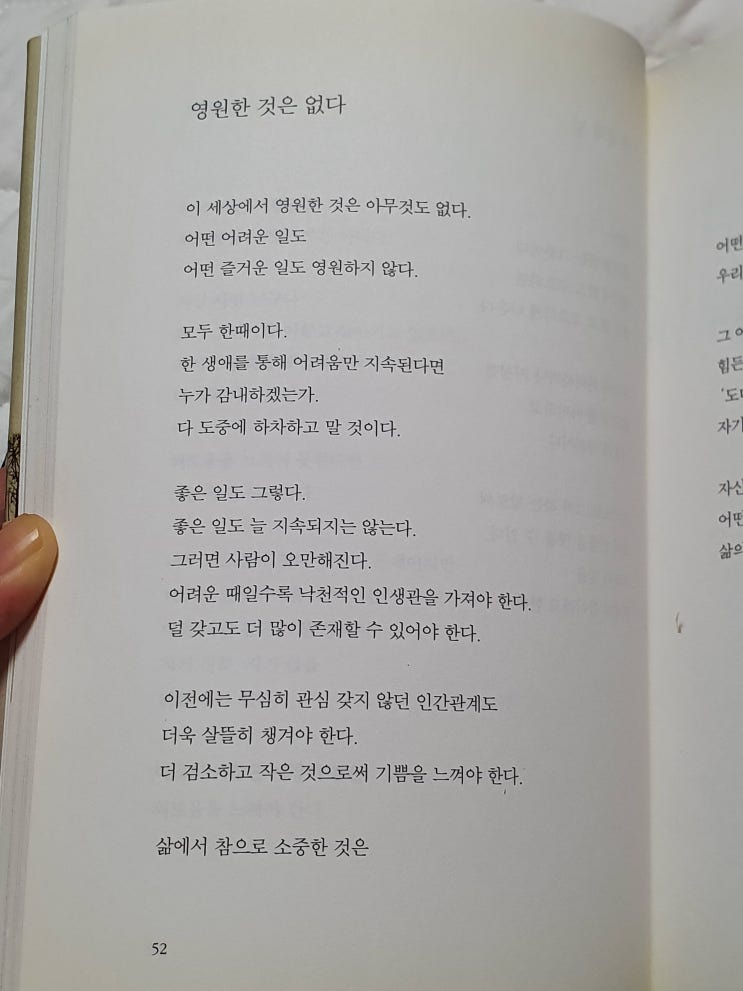 영원한 것은 없다
이 세상에서 영원한 것은 아무것도 없다.
어떤 어려운 일도
어떤 즐거운 일도 영원하지 않다.
모두 한때이다.
한 생애를 통해 어려움만 지속된다면
누가 감내하겠는가.
다 도중에 하차하고 말 것이다.
좋은 일도 그렇다.
좋은 일도 늘 지속되지는 않는다.
그러면 사람이 오만해진다.
어려운 때일수록 낙천적인 인생관을 가져야 한다.
덜 갖고도 더 많이 존재할 수 있어야 한다.
이전에는 무심히 관심 갖지 않던 인간관계도
더욱 살뜰히 챙겨야 한다.
더 검소하고 작은 것으로써 기쁨을 느껴야 한다.
삶에서 참으로 소중한 것은
52
어떤
우리
그
힘든
자기
자신
어떤
삶의